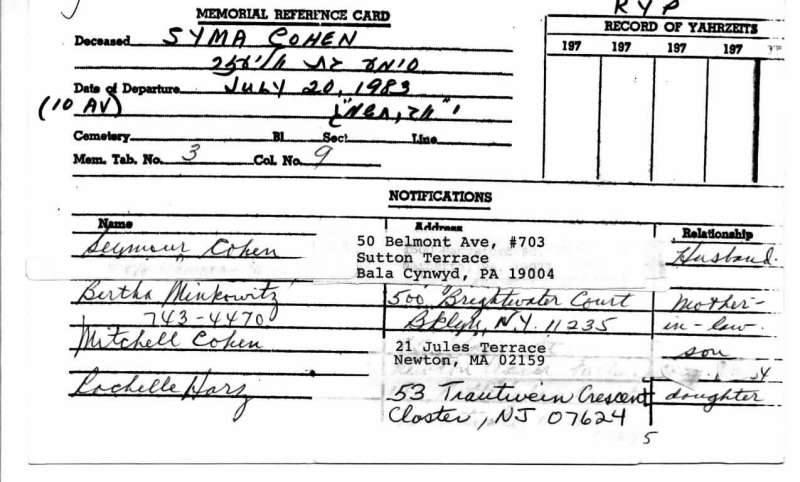 R Y P
MEMORIAL REFERENCE CARD
RECORD OF YAHRZEITS
Deceased SYMA COHEN
197 197 197 197
Date of Departure JULY 20, 1983
(10 AV)
Cemetery Bl Sect Line
Mem. Tab. No. 3 Col. No. 9
NOTIFICATIONS
Name Address Relationship
Seymour Cohen 50 Belmont Ave, #703 Husband.
Sutton Terrace
Bala Cynwyd, PA 19004
Bertha Minkowitz 500 Brightwater Court Mother-
743-4470 Bklyn, N.Y. 11235 in-law.
Mitchell Cohen 21 Jules Terrace son
Newton, MA 02159
Rochelle Harz 53 Trautwein Crescent daughter
Closter, NJ 07624
5